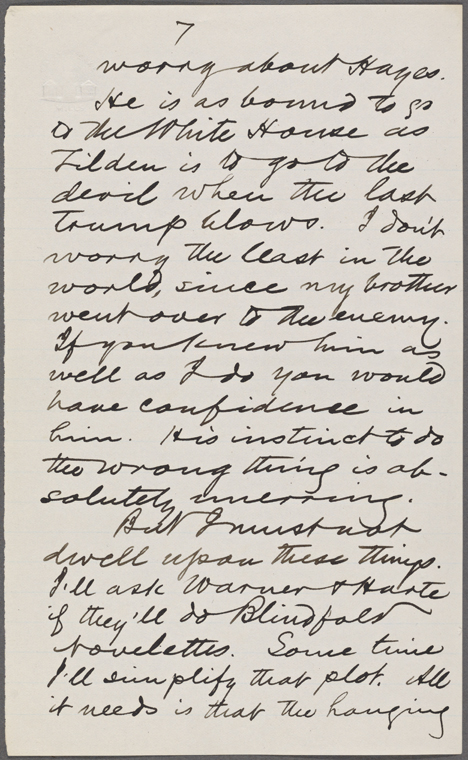 7
worry about Hayes.
He is as bound to go
to the White House as
Tilden is to go to the
devil when the last
trump blows. I don't
worry the least in the
world, since my brother
went over to the enemy.
If you knew him as
well as I do you would
have confidence in
him. His instinct to do
the wrong thing is ab-
solutely unerring.
But I must not
dwell upon these things.
I'll ask Warner & Harte
if they'll do Blindfold
Novelettes. Some time
I'll simplify that plot. All
it needs is that the hanging